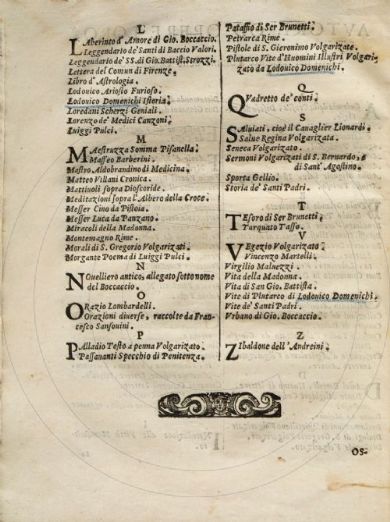 L
LAberinto d'Amore di Gio. Boccaccio.
Leggendario de' Santi di Baccio Valori.
Leggendario de' SS. di Gio. Batist. Strozzi.
Lettera del Comun di Firenze.
Libro d'Astrologia.
Lodovico Ariosto Furioso.
Lodovico Domenichi Istoria.
Loredani Scherzi Geniali.
Lorenzo de' Medici Canzoni.
Luigi Pulci.
M
MAestruzza Somma Pisanella.
Maffeo Barberini.
Mastro Aldobrandino di Medicina.
Matteo Villani Cronica.
Mattiuoli sopra Dioscoride.
Meditazioni sopra l'Albero della Croce.
Messer Cino da Pistoia.
Messer Luca da Panzano.
Miracoli della Madonna.
Montemagno Rime.
Morali di S. Gregorio Volgarizati.
Morgante Poema di Luiggi Pulci.
N
NOuelliero antico, allegato sotto nome
del Boccaccio.
O
ORazio Lombardelli.
Orazioni diverse, raccolte da Fran-
cesco Sansouini.
P
PAlladio Testo a penna Volgarizato.
Passauanti Specchio di Penitenza.
Pataffio di Ser Brunetti.
Petrarca Rime.
Pistole di S. Gieronimo Volgarizate.
Plutarco Vite d'Huomini Illustri Volgari-
zato da Lodouico Domenichi.
Q
QVadretto de' conti.
S
SAluiati, cioè il Caualier Lionardi.
Salue Regina Volgarizata.
Seneca Volgarizato.
Sermoni Volgarizati di S. Bernardo, e
di Sant' Agostino.
Sporta Gellio.
Storia de' Santi Padri.
T
TEsoro di Ser Brunetti.
Torquato Tasso.
V
VEgezio Volgarizato.
Vincenzo Martelli.
Virgilio Maluezzi.
Vita della Madonna.
Vita di San Gio. Battista.
Vite di Plutarco di Lodouico Domenichi.
Vite de' Santi Padri.
Vrbano di Gio. Boccaccio.
Z
ZIbaldone dell' Andreini.
OS-